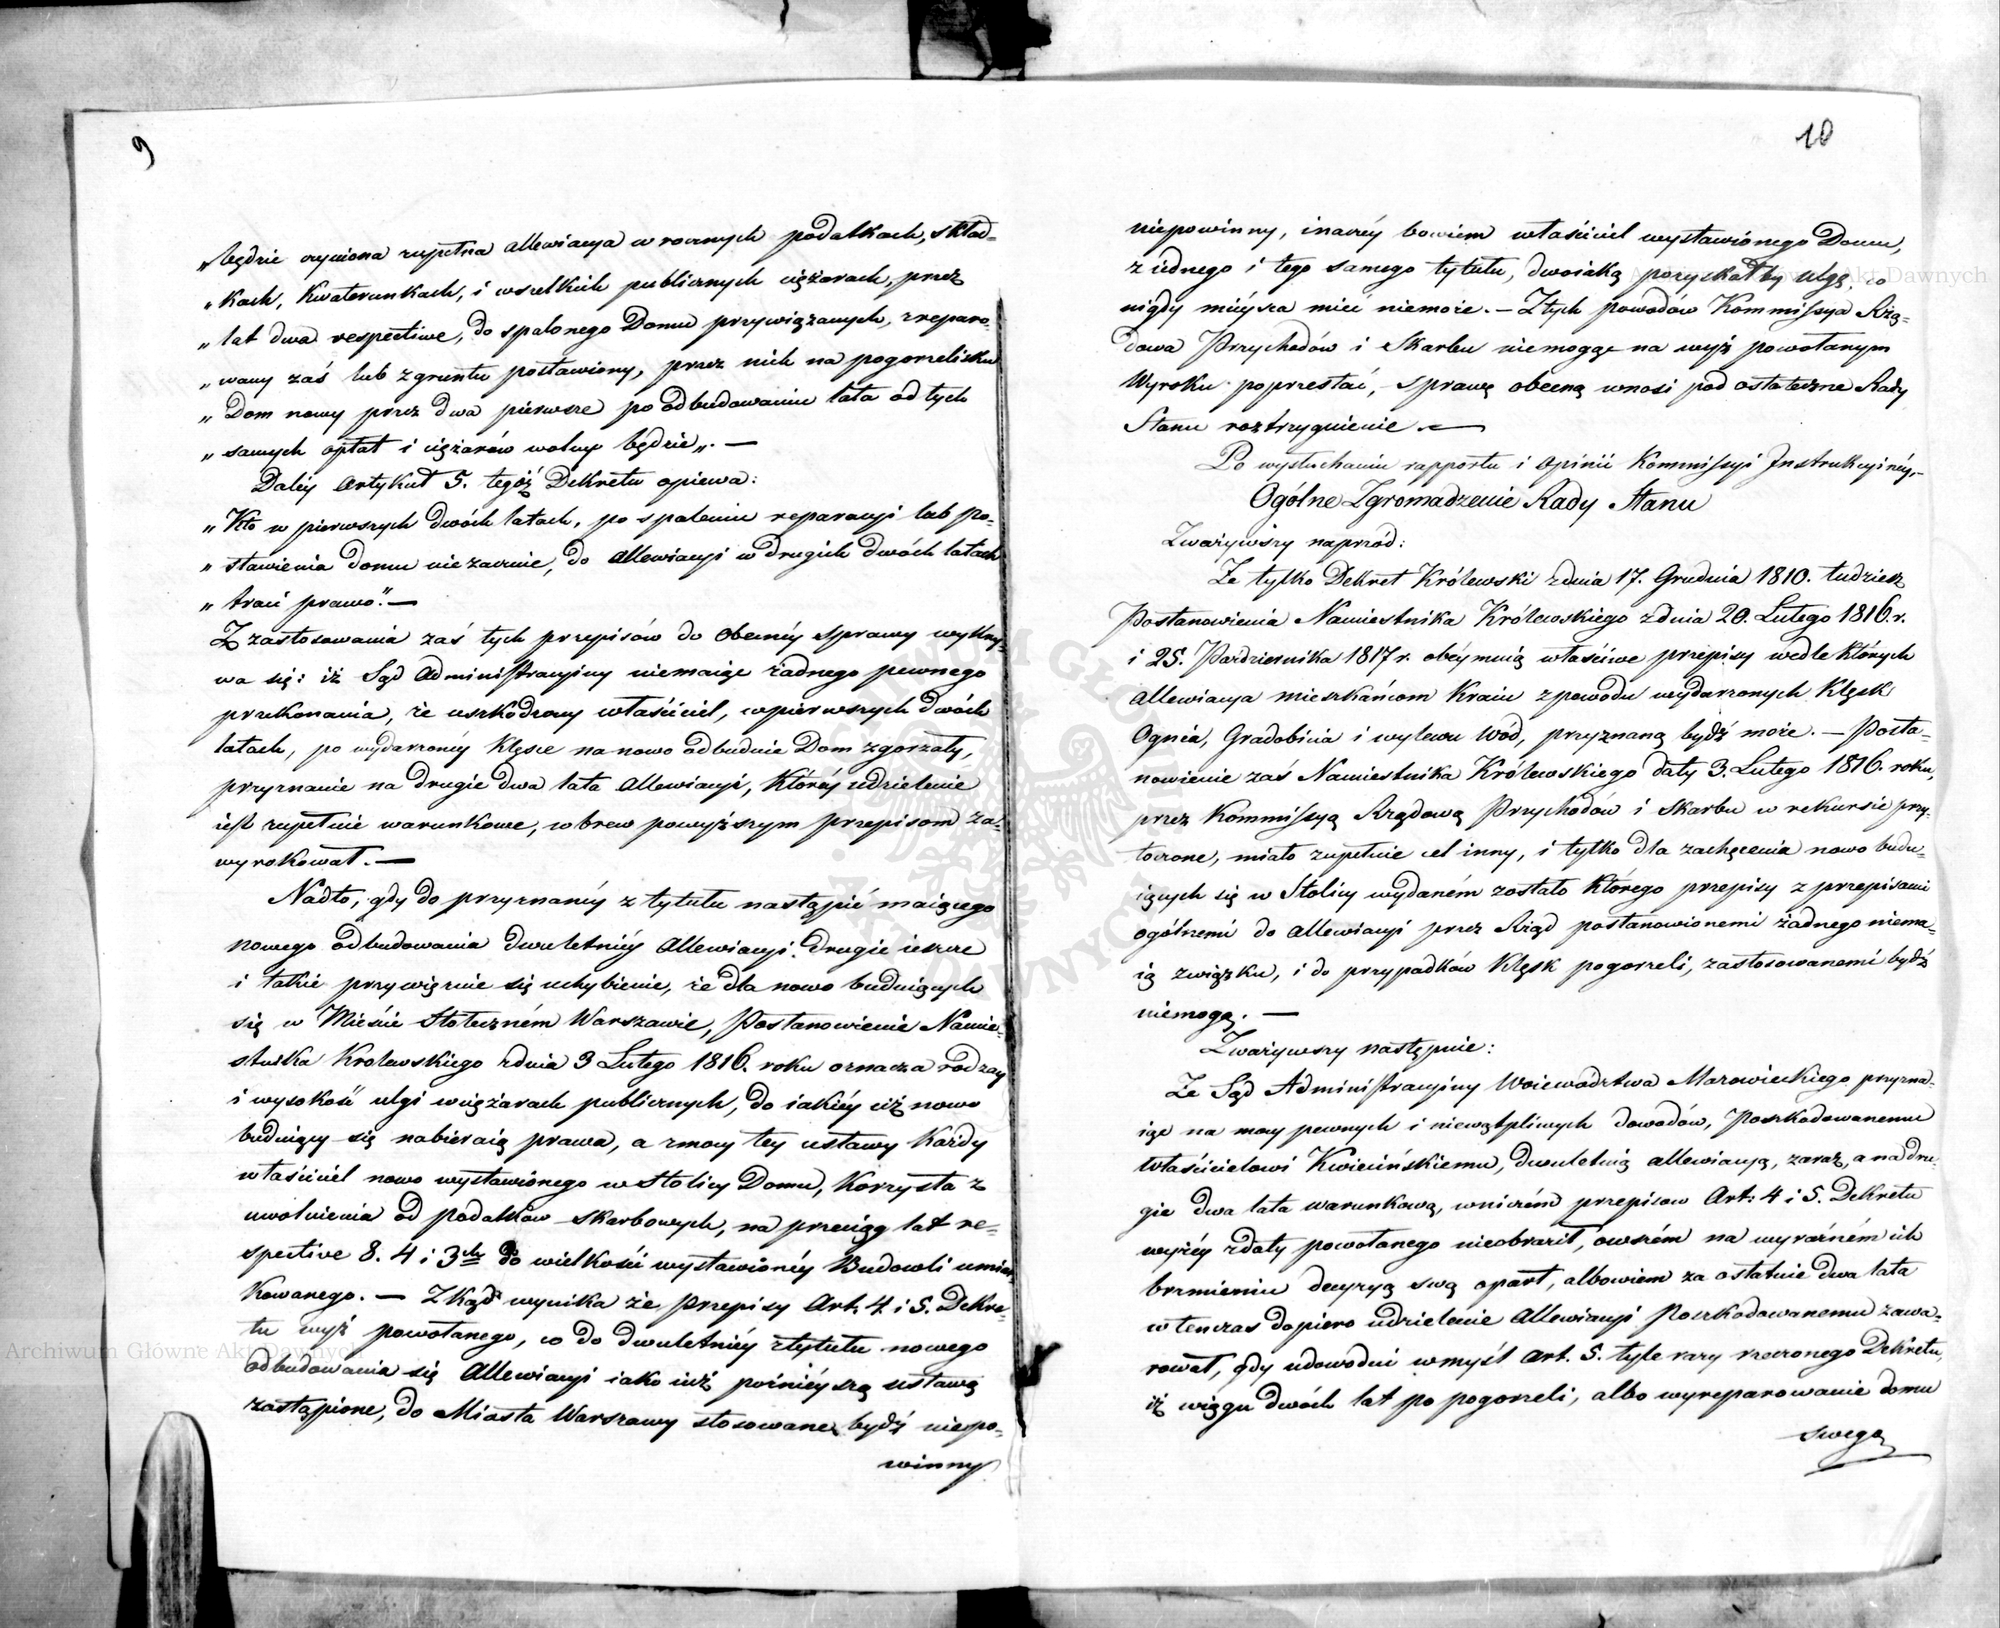 9
„będzie czyniona zupełna allewiacya w rocznych podatkach, skład-
„kach, Kwaterunkach, i wszelkich publicznych ciężarach, przez
„lat dwa respective, do spalonego Domu przywiązanych, zreparo-
„wany zaś lub z gruntu postawiony, przez nich na pogorzelisku
„Dom nowy przez dwa pierwsze po odbudowaniu lata od tych
„samych opłat i ciężarów wolny będzie„. —
Daléy Artykuł 5. tegóż Dekretu opiewa:
„Kto w pierwszych dwóch latach, po spaleniu reparacyi lub po-
„stawienia domu niezacznie, do allewiacyi w drugich dwóch latach
„traci prawo". —
Z zastosowania zaś tych przepisów do obecnéy sprawy wykry-
wa się: iż Sąd Administracyiny niemaiąc żadnego pewnego
przekonania, że uszkodzony właściciel, w pierwszych dwóch
latach, po wydarzonéy klęsce na nowo odbuduie Dom zgorzały,
przyznanie na drugie dwa lata allewiacyi, któréy udzielenie
iest zupełnie warunkowe, wbrew powyższym przepisom za-
wyrokował. —
Nadto, gdy do przyznanéy z tytułu nastąpić maiącego
nowego odbudowania dwuletniéy allewiacyi. Drugie ieszcze
i takie przywięzuie się uchybienie, że dla nowo buduiących
się w Mieście Stołeczném Warszawie, Postanowienie Namie-
stnika Krolewskiego z dnia 3 Lutego 1816. roku oznacza rodzay
i wysokość ulgi w ciężarach publicznych, do iakiéy iuż nowo
buduiący się nabieraią prawa, a z mocy tey ustawy Każdy
właściciel nowo wystawionego w Stolicy Domu, Korzysta z
uwolnienia od Podatków Skarbowych, na przeciąg lat re-
spective 8. 4 i 3ch do wielkości wystawionéy Budowli umiar-
kowanego. — Zkąd wynika że przepisy Art: 4 i 5. Dekre-
tu wyż powołanego, co do dwuletniéy z tytułu nowego
odbudowania się Allewiacyi iako iuż poźniéyszą ustawą
zastąpione, do Miasta Warszawy stosowane bydź niepo-
winny
10
niepowinny, inaczéy bowiem właściciel wystawionego Domu,
z iednego i tego samego tytułu, dwoiaką pozyskałby ulgę, co
nigdy mieysca mieć niemoże. — Z tych powodów Kommissya Rzą-
dowa Przychodów i Skarbu niemogąc na wyż powołanym
Wyroku poprzestać, sprawę obecną wnosi pod ostateczne Rady
Stanu roztrzygnienie. —
Po wysłuchaniu rapportu i opinii Kommissyi Instrukcyinéy, —
Ogólne Zgromadzenie Rady Stanu
Zważywszy naprzód:
Że tylko Dekret Królewski z dnia 17. Grudnia 1810. tudzież
Postanowienia Namiestnika Królewskiego z dnia 20. Lutego 1816. r.
i 25. Października 1817 r. obéymuią właściwe przepisy wedle których
allewiacya mieszkańcom Kraiu z powodu wydarzonych klęsk
Ognia, Gradobicia i wylewu Wód, przyznaną bydź może. — Posta-
nowienie zaś Namiestnika Królewskiego daty 3. Lutego 1816. roku,
przez Kommissyą Rządową Przychodów i Skarbu w rekursie przy-
toczone, miało zupełnie cel inny, i tylko dla zachęcenia nowo budu-
iących się w Stolicy wydaném zostało którego przepisy z przepisami
ogólnemi do allewiacyi przez Rząd postanowionemi żadnego niema-
ią związku, i do przypadków klęsk pogorzeli, zastosowanemi bydź
niemogą. —
Zważywszy następnie:
Że Sąd Administracyiny Woiewództwa Mazowieckiego przyzna-
iąc na mocy pewnych i niewątpliwych dowodów, Poszkodowanemu
Właścicielowi Kwiecińskiemu, dwuletnią allewiacyą, zaraz, a na dru-
gie dwa lata warunkową, wniczém przepisow Art: 4 i 5. Dekretu
wyżéy z daty powołanego nieobraził, owszém na wyraźném ich
brzmieniu decyzyą swą oparł, albowiem za ostatnie dwa lata
wtenczas dopiero udzielenie Allewiacyi Poszkodowanemu zawa-
rował, gdy udowodni w myśl Art. 5. tyle razy rzeczonego Dekretu,
iż wciągu dwóch lat po pogorzeli, albo wyreparowanie domu
swego